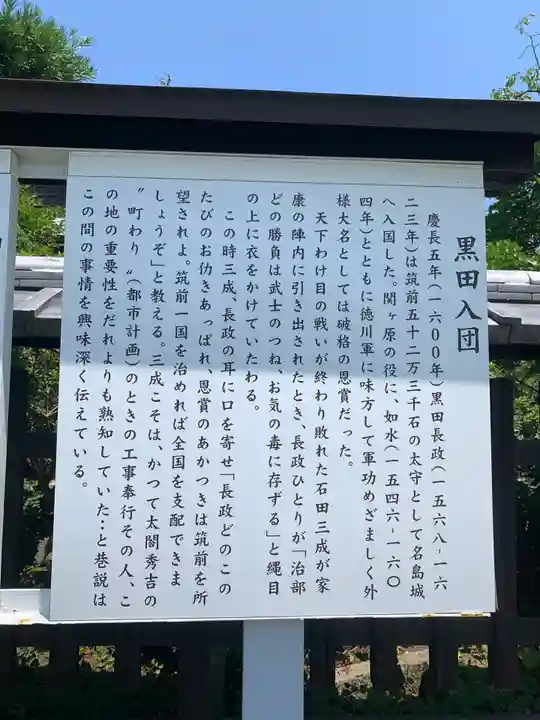 黒田入団
慶長五年(一六００年)黒田長政(一五六八-一六
二三年)は筑前五十二万三千石の太守として名島城
へ入国した。関ヶ原の役に、如水(一五四六-一六〇
四年)とともに徳川軍に味方して軍功めざましく外
様大名としては破格の恩賞だった。
天下わけ目の戦いが終わり敗れた石田三成が家
康の陣内に引き出されたとき、長政ひとりが「治部
どの勝負は武士のつね、お気の毒に存ずる」と縄目
の上に衣をかけていたわる。
この時三成、長政の耳に口を寄せ「長政どのこの
たびのお仂きあっぱれ、恩賞のあかつきは筑前を所
望されよ。筑前一国を治めれば全国を支配できま
しょうぞ」と教える。三成こそは、かつて太閤秀吉の
〝町わり〟(都市計画)のときの工事奉行その人、こ
の地の重要性をだれよりも熟知していた‥と巷説は
この間の事情を興味深く伝えている。